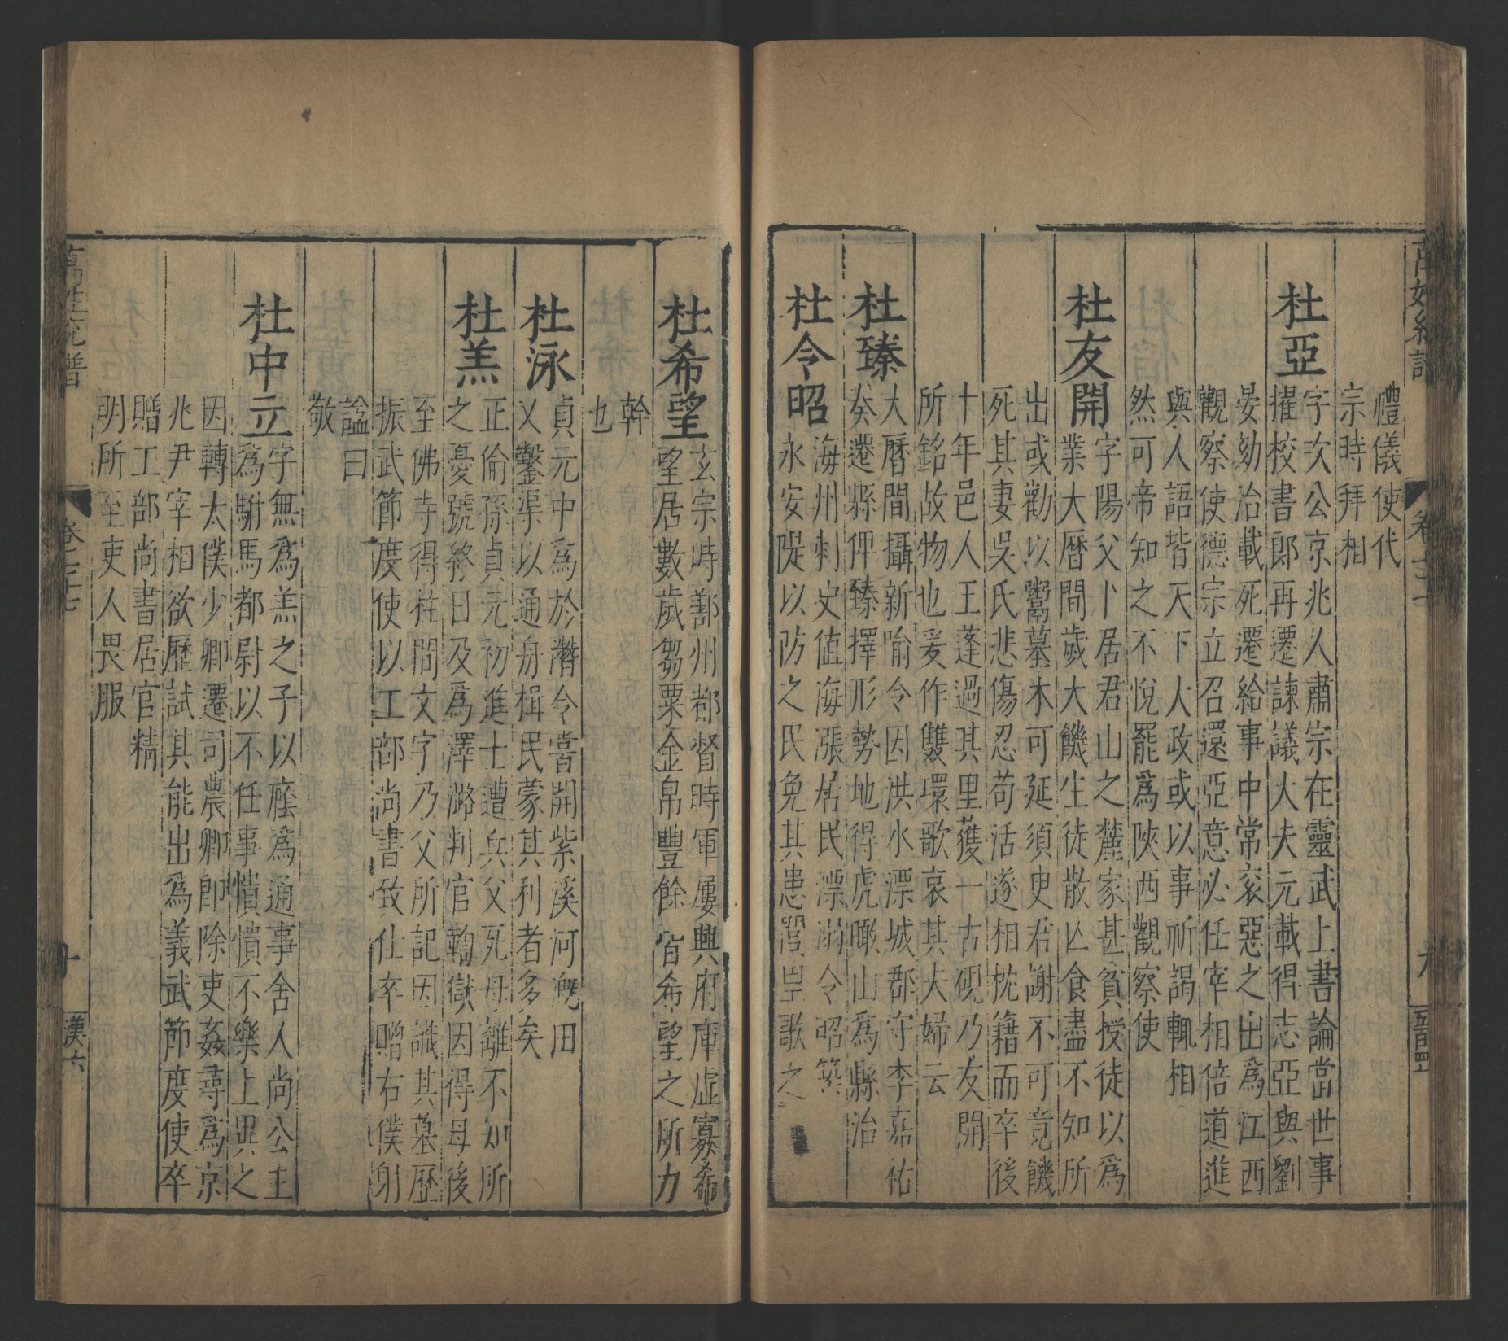 禮儀使代
宗時拜相
杜亞
字次公京兆人肅宗在靈武上書論當世事
擢校書郎再遷諫議大夫元載得志亞與劉
晏幼治載死遷給事中常衮惡之出爲江西
觀察使德宗立召還亞意必任宰相倍道進
與人語皆天下大政或以事祈謁輒相
然可帝知之不悅罷爲陝西觀察使
杜友開
字陽父卜居君山之麓家甚貧授徒以爲
業大曆間歲大饑生徒散亾食盡不知所
出或勸以鬻墓木可延須臾君謝不可竟饑
死其妻吳氏悲傷忍苟活遂相枕籍而卒後
十年邑人王蓬過其里獲一古硯乃友開
所銘故物也爰作雙壞歌哀其夫婦云
杜臻
大曆間攝新喻令因洪水漂城郡守李嘉祐
奏遷縣俾臻擇形勢地得虎瞰山爲縣治
杜令昭
海州刺史值海漲居民漂溺令昭築
永安隄以防之民免其患謳思歌之
萬姓統譜
杜希望
玄宗時鄯州都督時軍屢興府庫虛寡希
望居數歲芻粟金帛豐餘宿希望之所力
幹
也
杜泳
貞元中爲於潛令嘗開紫溪河溉田
又鑿渠以通舟楫民蒙其利者多矣
杜羔
正倫孫貞元初進士遭兵父死母離不知所
之憂號終日及爲澤潞判官鞫獄因得母後
至佛寺得柱間文字乃父所記因識其墓歷
振武節度使以工部尚書致仕卒贈右僕射
諡曰
敬
杜中立
字無爲羔之子以廕爲通事舍人尚公主
爲駙馬都尉以不任事憤憤不樂上異之
因轉太僕少卿遷司農卿卽除吏姦尋爲京
兆尹宰相欲歷試其能出爲義武節度使卒
贈工部尚書居官精
明所至吏人畏服
萬姓統譜
十
漢六